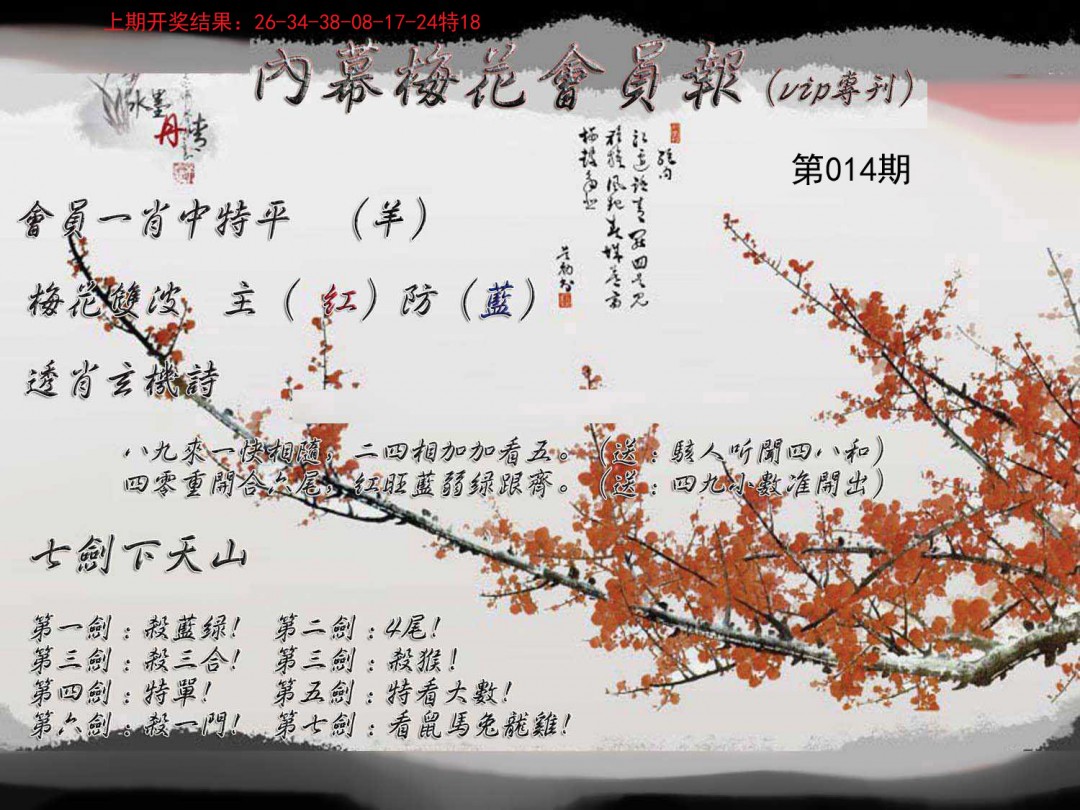 上期开奖结果：26-34-38-08-17-24特18
內幕梅花會員報（vip專刊）
水墨
丹情
第014期
會員一肖中特平　（羊）
梅花雙波　主（紅）防（藍）
透肖玄機詩
八九來一快相隨，二四相加加看五。（送：駭人听聞四八和）
四零重開合六尾，红旺藍弱绿跟齊。（送：四九小數准開出）
七劍下天山
第一劍：殺藍绿！　第二劍：4尾！
第三劍：殺三合！　第三劍：殺猴！
第四劍：特單！　第五劍：特看大數！
第六劍：殺一門！　第七劍：看鼠馬兔龍雞！